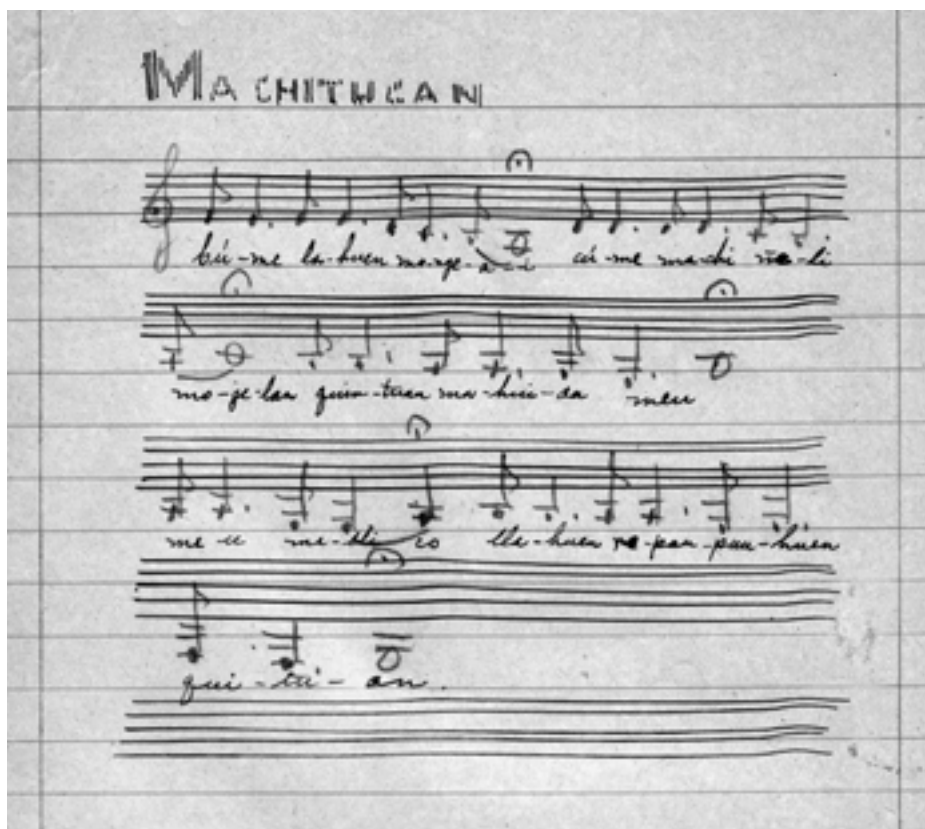 MACHITUCAN
cú-me la-huen mo-nge-a-i cú-me ma-chi me-li
mo-ge-lan quin-tuan ma-hui-da meu
me-u me-li co lla-huen re-pan-pau-huen
qui-tu-an.